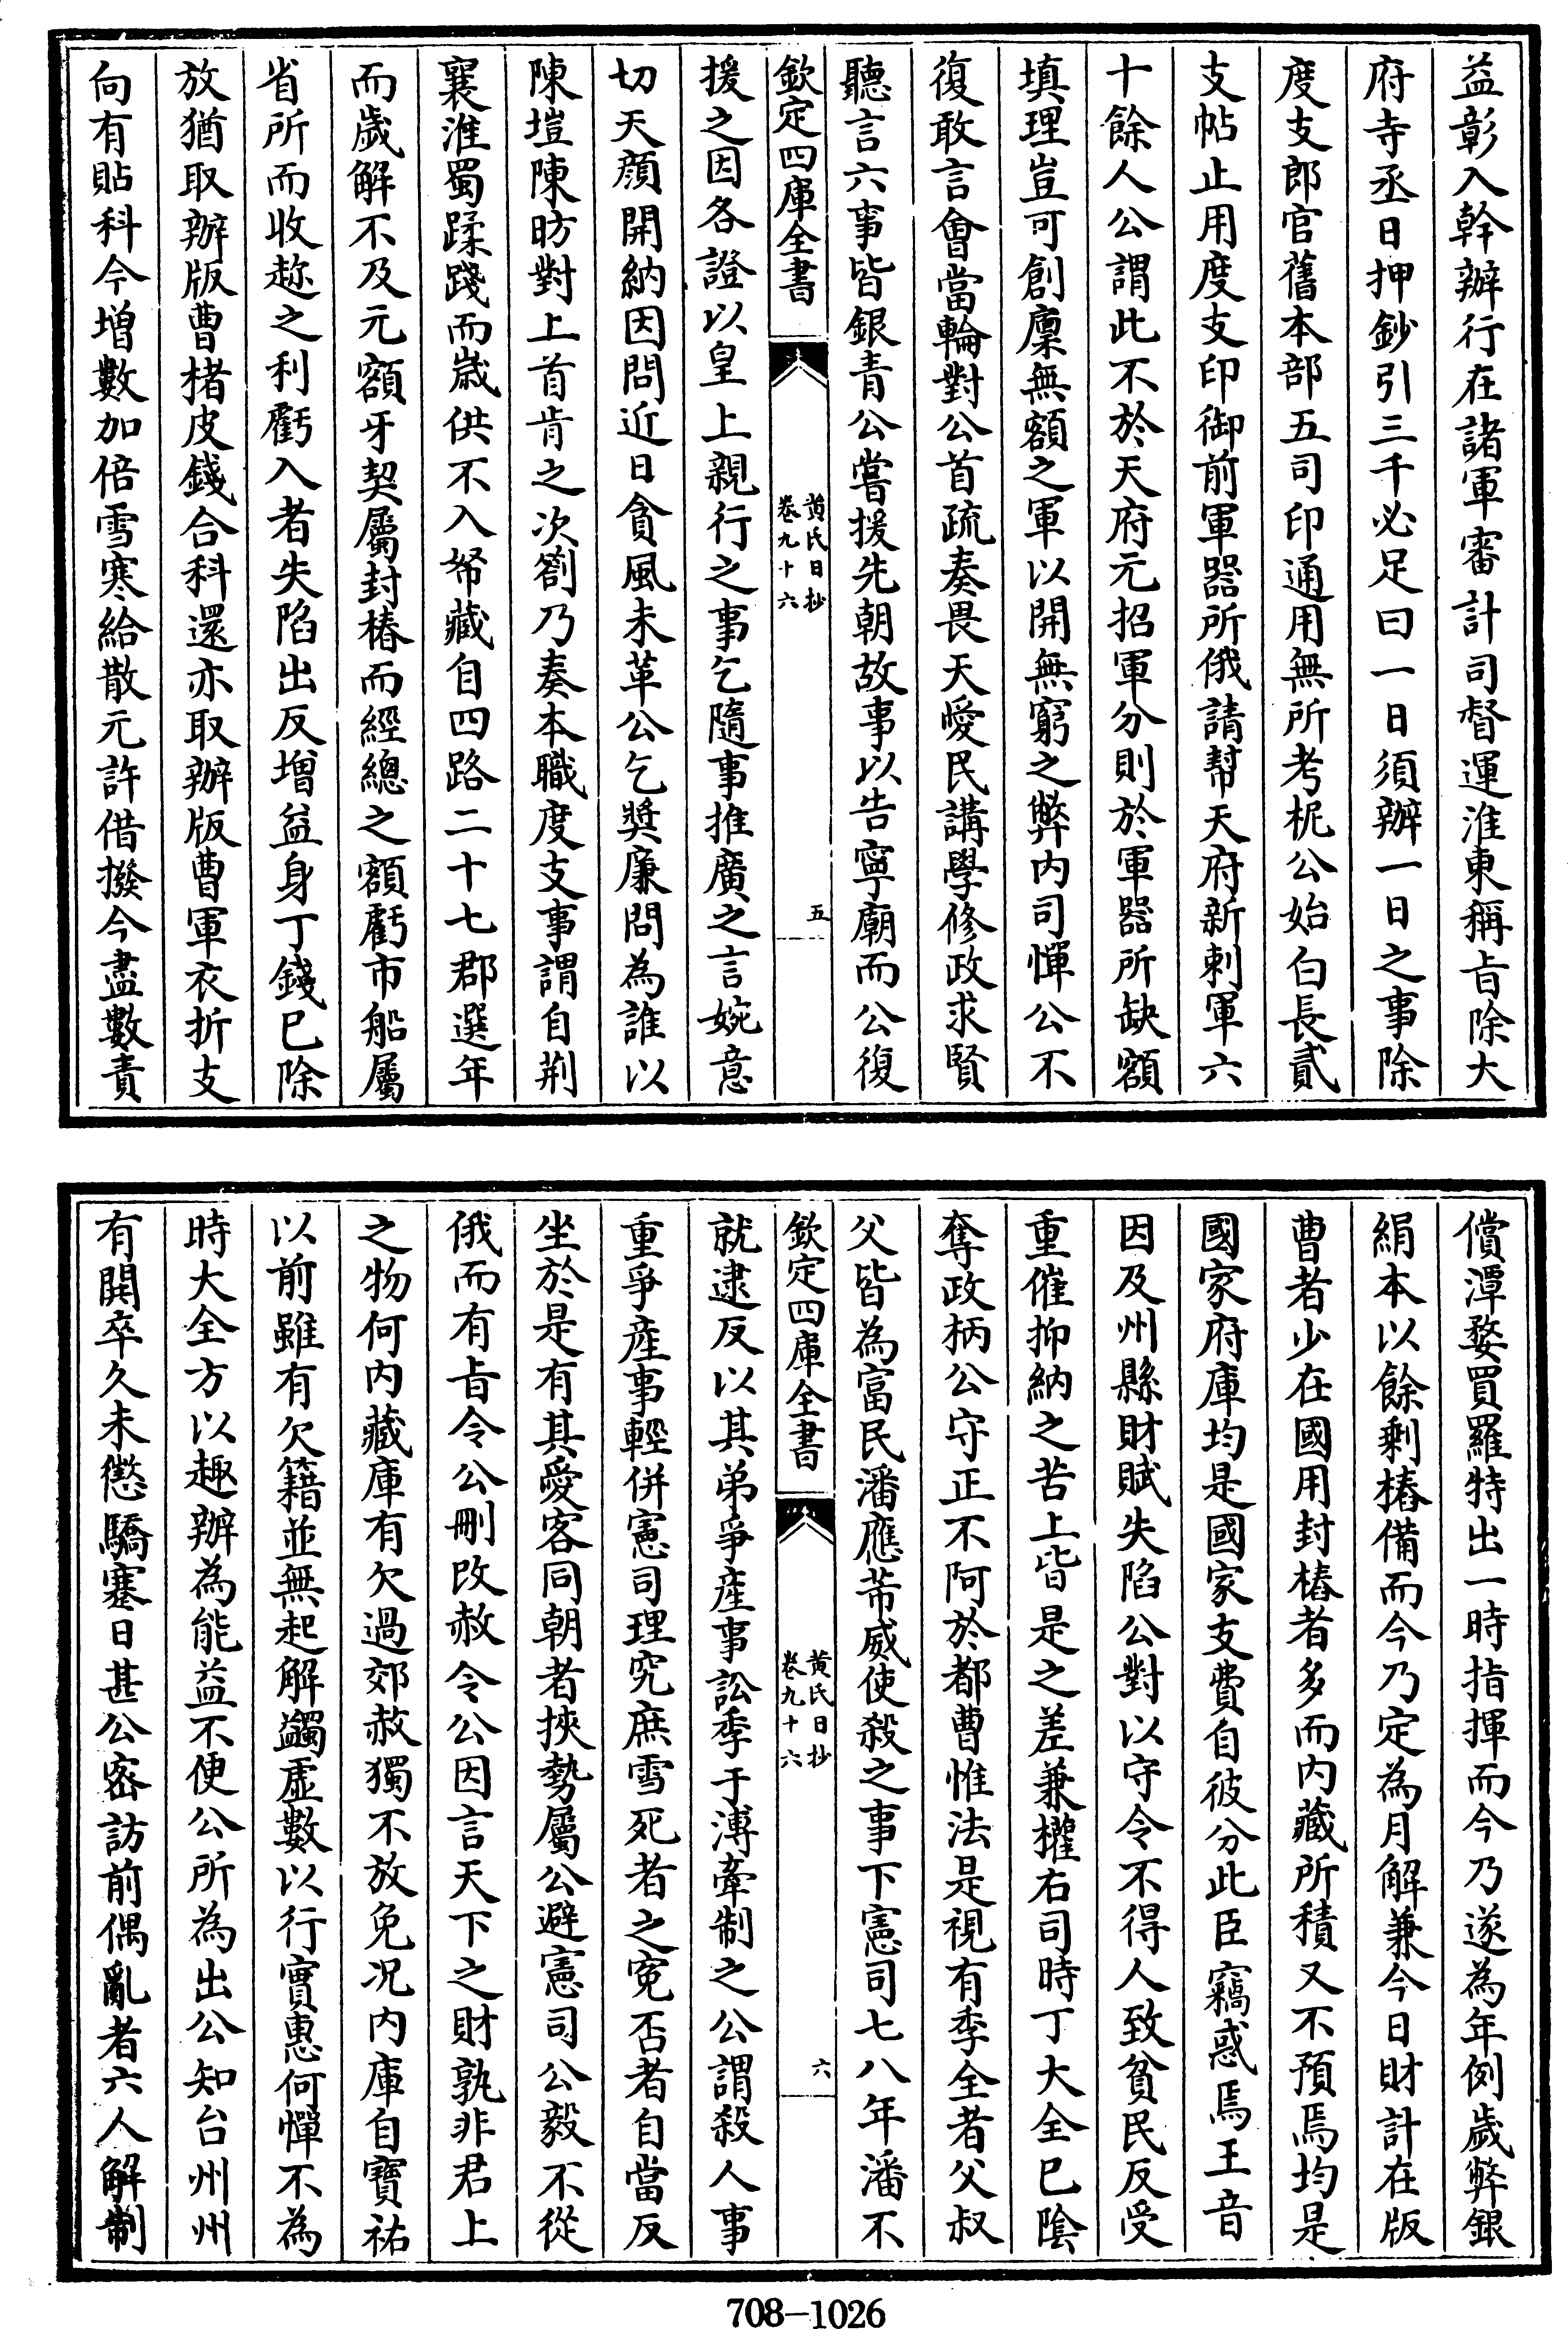 益彰入幹辦行在諸軍審計司督運淮東稱㫖除大
府寺丞日押鈔引三千必足曰一日須辦一日之事除
度支郎官舊本部五司印通用無所考柅公始白長貳
支帖止用度支印御前軍器所俄請幇天府新刺軍六
十餘人公謂此不於天府元招軍分則於軍器所缺額
填理豈可創廩無額之軍以開無窮之弊内司憚公不
復敢言會當輪對公首疏奏畏天愛民講學修政求賢
聽言六事皆銀青公嘗援先朝故事以告寧廟而公復
欽定四庫全書
黄氏日抄
卷九十六
五
援之因各證以皇上親行之事乞隨事推廣之言婉意
切天顔開納因問近日貪風未革公乞奬廉問為誰以
陳塏陳昉對上首肯之次劄乃奏本職度支事謂自荆
襄淮蜀蹂踐而歳供不入帑藏自四路二十七郡選年
而歲解不及元額牙契屬封樁而經總之額虧市舶屬
省所而收趂之利虧入者失陷出反增益身丁錢已除
放猶取辦版曹楮皮錢合科還亦取辦版曹軍衣折支
向有貼科今增數加倍雪寒給散元許借撥今盡數責
償潭婺買羅特出一時指揮而今乃遂為年例歲弊銀
絹本以餘剩樁備而今乃定為月解兼今日財計在版
曹者少在國用封樁者多而内藏所積又不預焉均是
國家府庫均是國家支費自彼分此臣竊惑焉王音
因及州縣財賦失陷公對以守令不得人致貧民反受
重催抑納之苦上皆是之差兼權右司時丁大全已陰
奪政柄公守正不阿於都曹惟法是視有季全者父叔
父皆為富民潘應芾威使殺之事下憲司七八年潘不
欽定四庫全書
黄氏日抄
卷九十六
六
就逮反以其弟爭産事訟季于溥牽制之公謂殺人事
重爭産事輕併憲司理究庶雪死者之寃否者自當反
坐於是有其愛客同朝者挾勢屬公避憲司公毅不從
俄而有㫖令公刪改赦令公因言天下之財孰非君上
之物何内藏庫有欠過郊赦獨不放免况内庫自寶祐
以前雖有欠籍並無起解蠲虚數以行實惠何憚不為
時大全方以趣辦為能益不便公所為出公知台州州
有閧卒久未懲驕蹇日甚公密訪前倡亂者六人解制